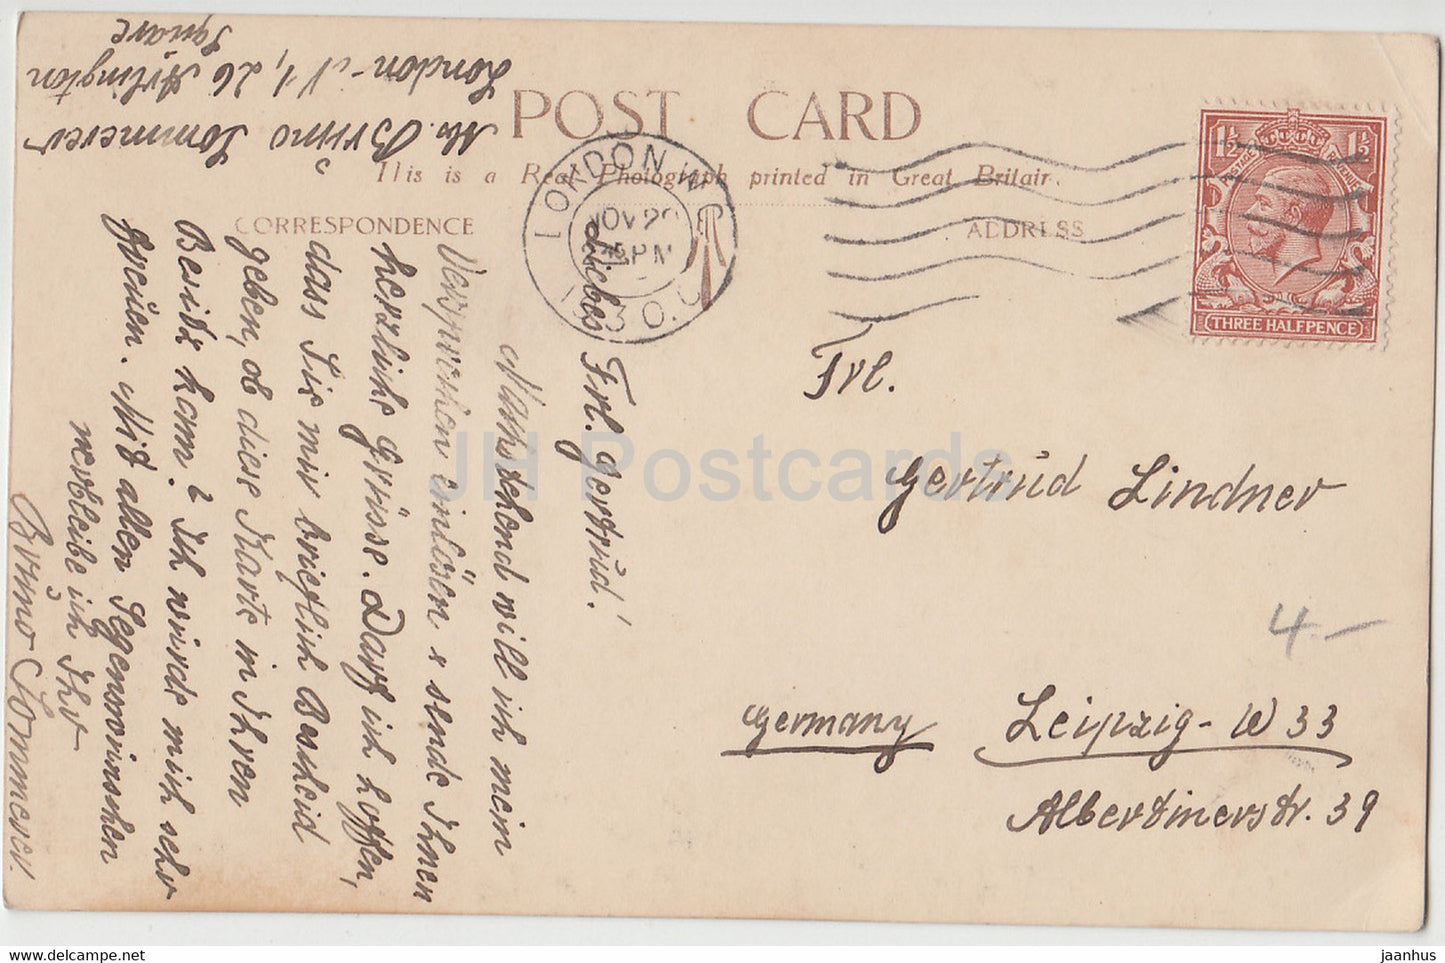 POST CARD
This is a Real Photograph printed in Great Britain.
CORRESPONDENCE
ADDRESS
Mr. Bruno Sommerer
London - N 1, 26 Arlington
Square
LONDON W.C
NOV 29
PM
POSTAGE REVENUE
1½ 1½
THREE HALFPENCE
Liebes Frl. Gertrud!
Nachstehend will ich mein
Versprechen einlösen & sende Ihnen
herzliche Grüsse. Darf ich hoffen,
dass Sie mir brieflich Bescheid
geben, ob diese Karte in Ihren
Besitz kam? Ich würde mich sehr
freuen. Mit allen Segenswünschen
verbleibe ich Ihr
Bruno Sommerer.
Frl.
Gertrud Lindner
4.-
Germany Leipzig - W 33
Albertinerstr. 39
JH Postcards
www.delcampe.net
jaanhus